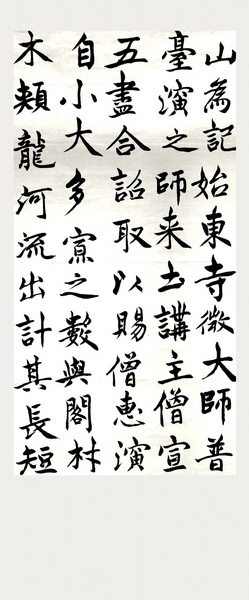 山為記始東寺徵大師普
臺演之師来土講主僧宣
五盡合詔取以賜僧惠演
自小大多寮之數與閣材
木頬龍河流出計其長短